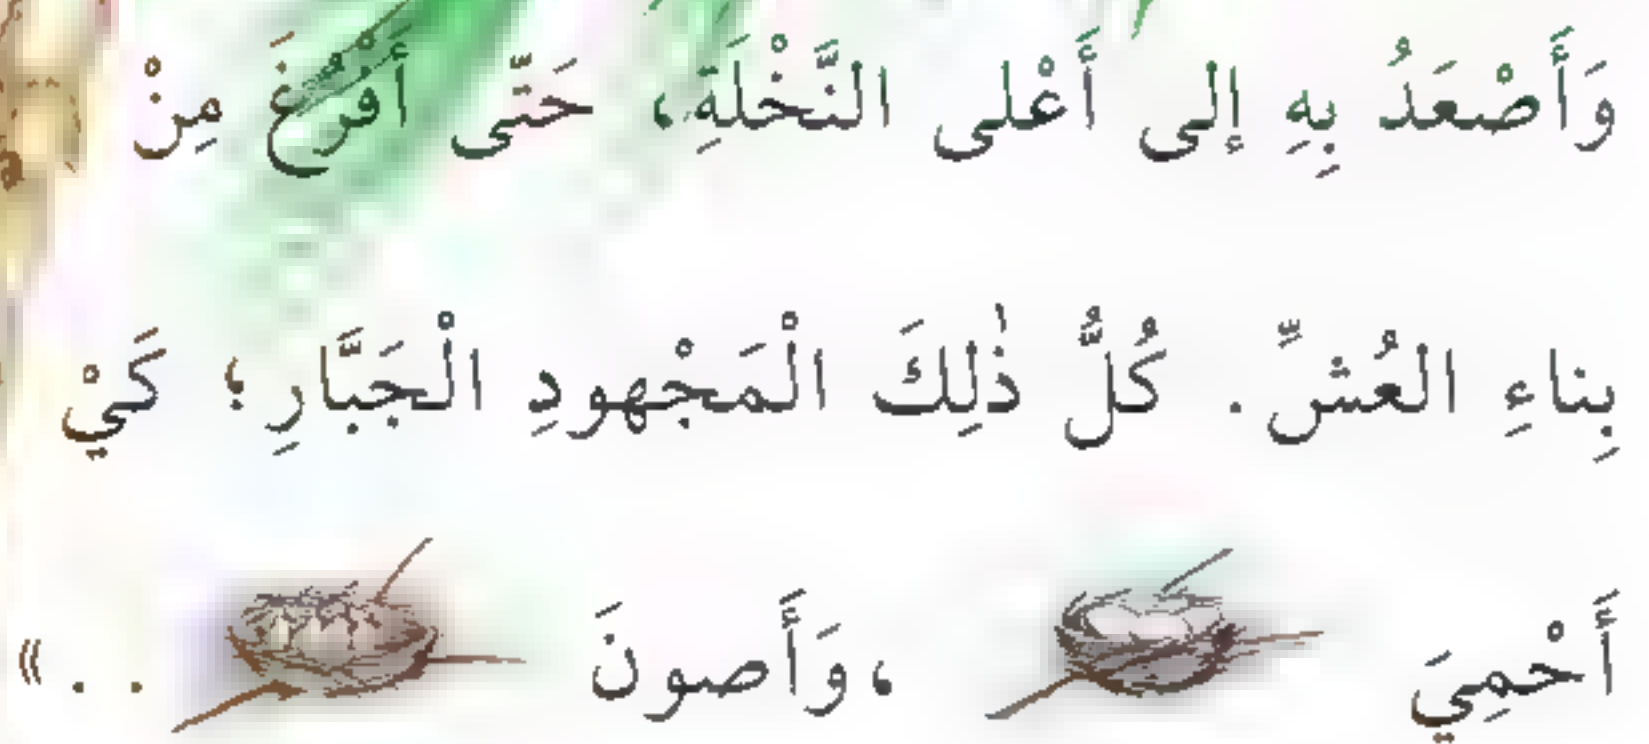 وَأَصْعَدُ بِهِ إِلى أَعْلى النَّخْلَةِ، حَتّى أَفْرُغَ مِنْ
بِناءِ العُشِّ. كُلُّ ذٰلِكَ الْمَجْهودِ الْجَبَّارِ؛ كَيْ
أَحْمِيَ ، وَأَصونَ . . »